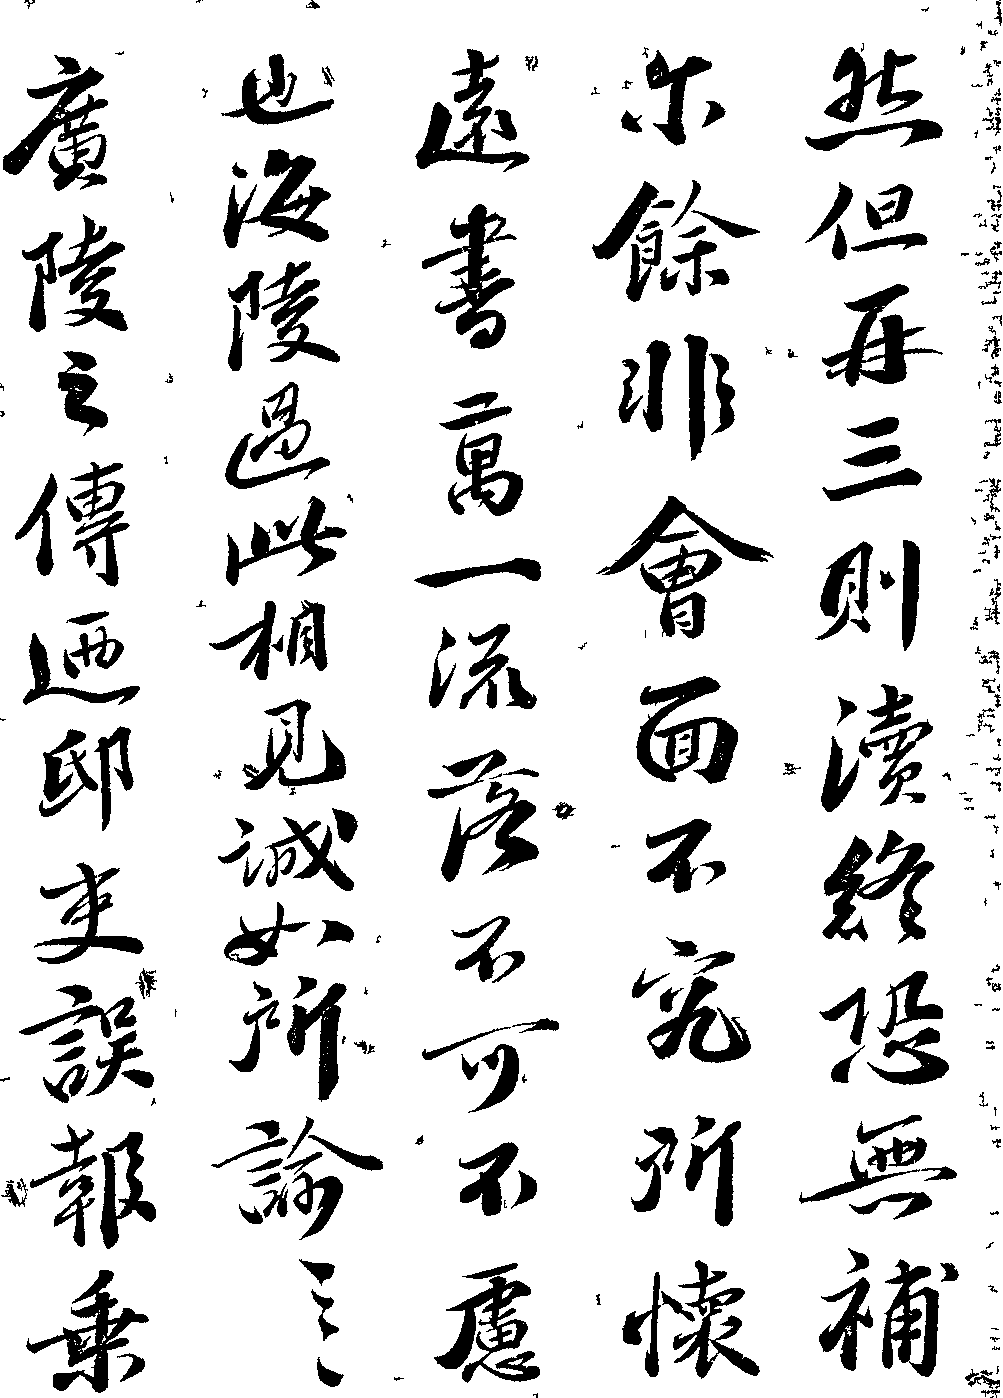 然但再三則瀆終恐無補
尓餘非會面不究所懷
遠書萬一流落不可不慮
也海陵過此相見誠如所諭
廣陵之傳迺邸吏誤報乗